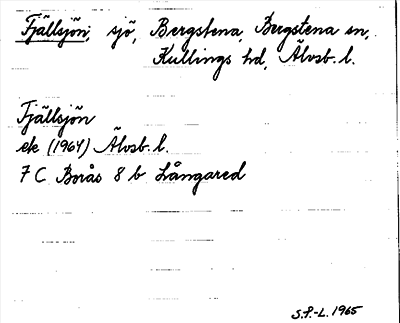 Fjällsjön, sjö, Bergstena, Bergstena sn,
Kullings hd, Älvsb. l.
Fjällsjön
ek (1964) Älvsb. l.
7 C Borås 8 b Långared
S.P.-L. 1965